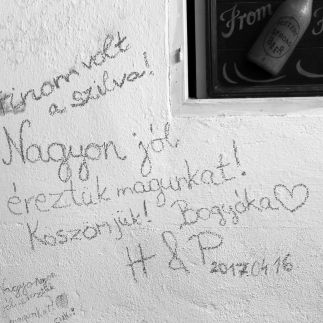 From
finom volt
a szilva!
Nagyon jól
éreztük magunkat!
Köszönjük! Bogyóka
H & P
2017 04 16